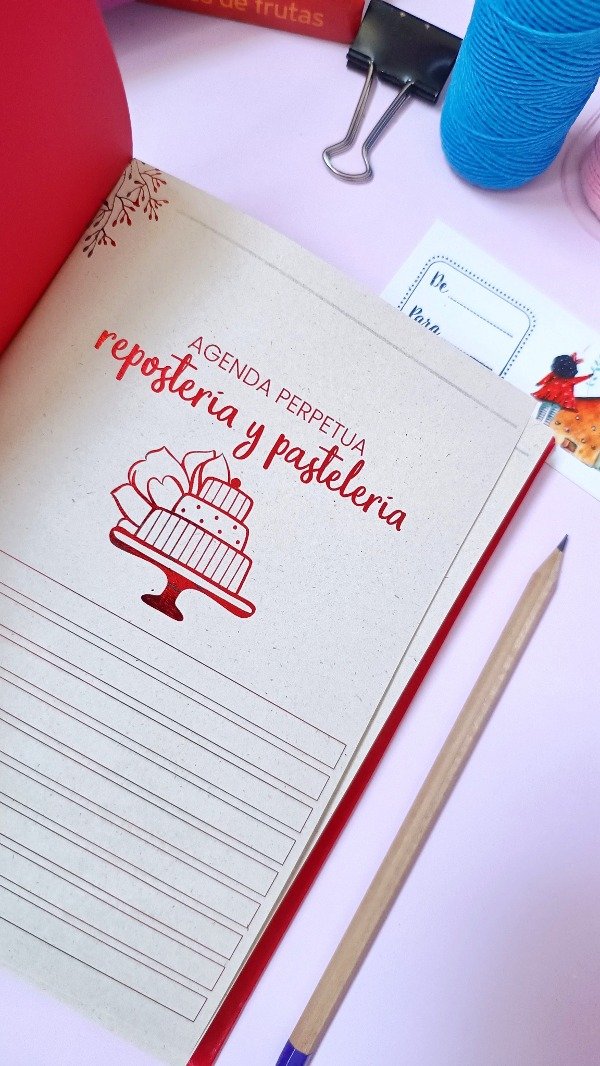 de frutas
De
Para
AGENDA PERPETUA
repostería y pastelería